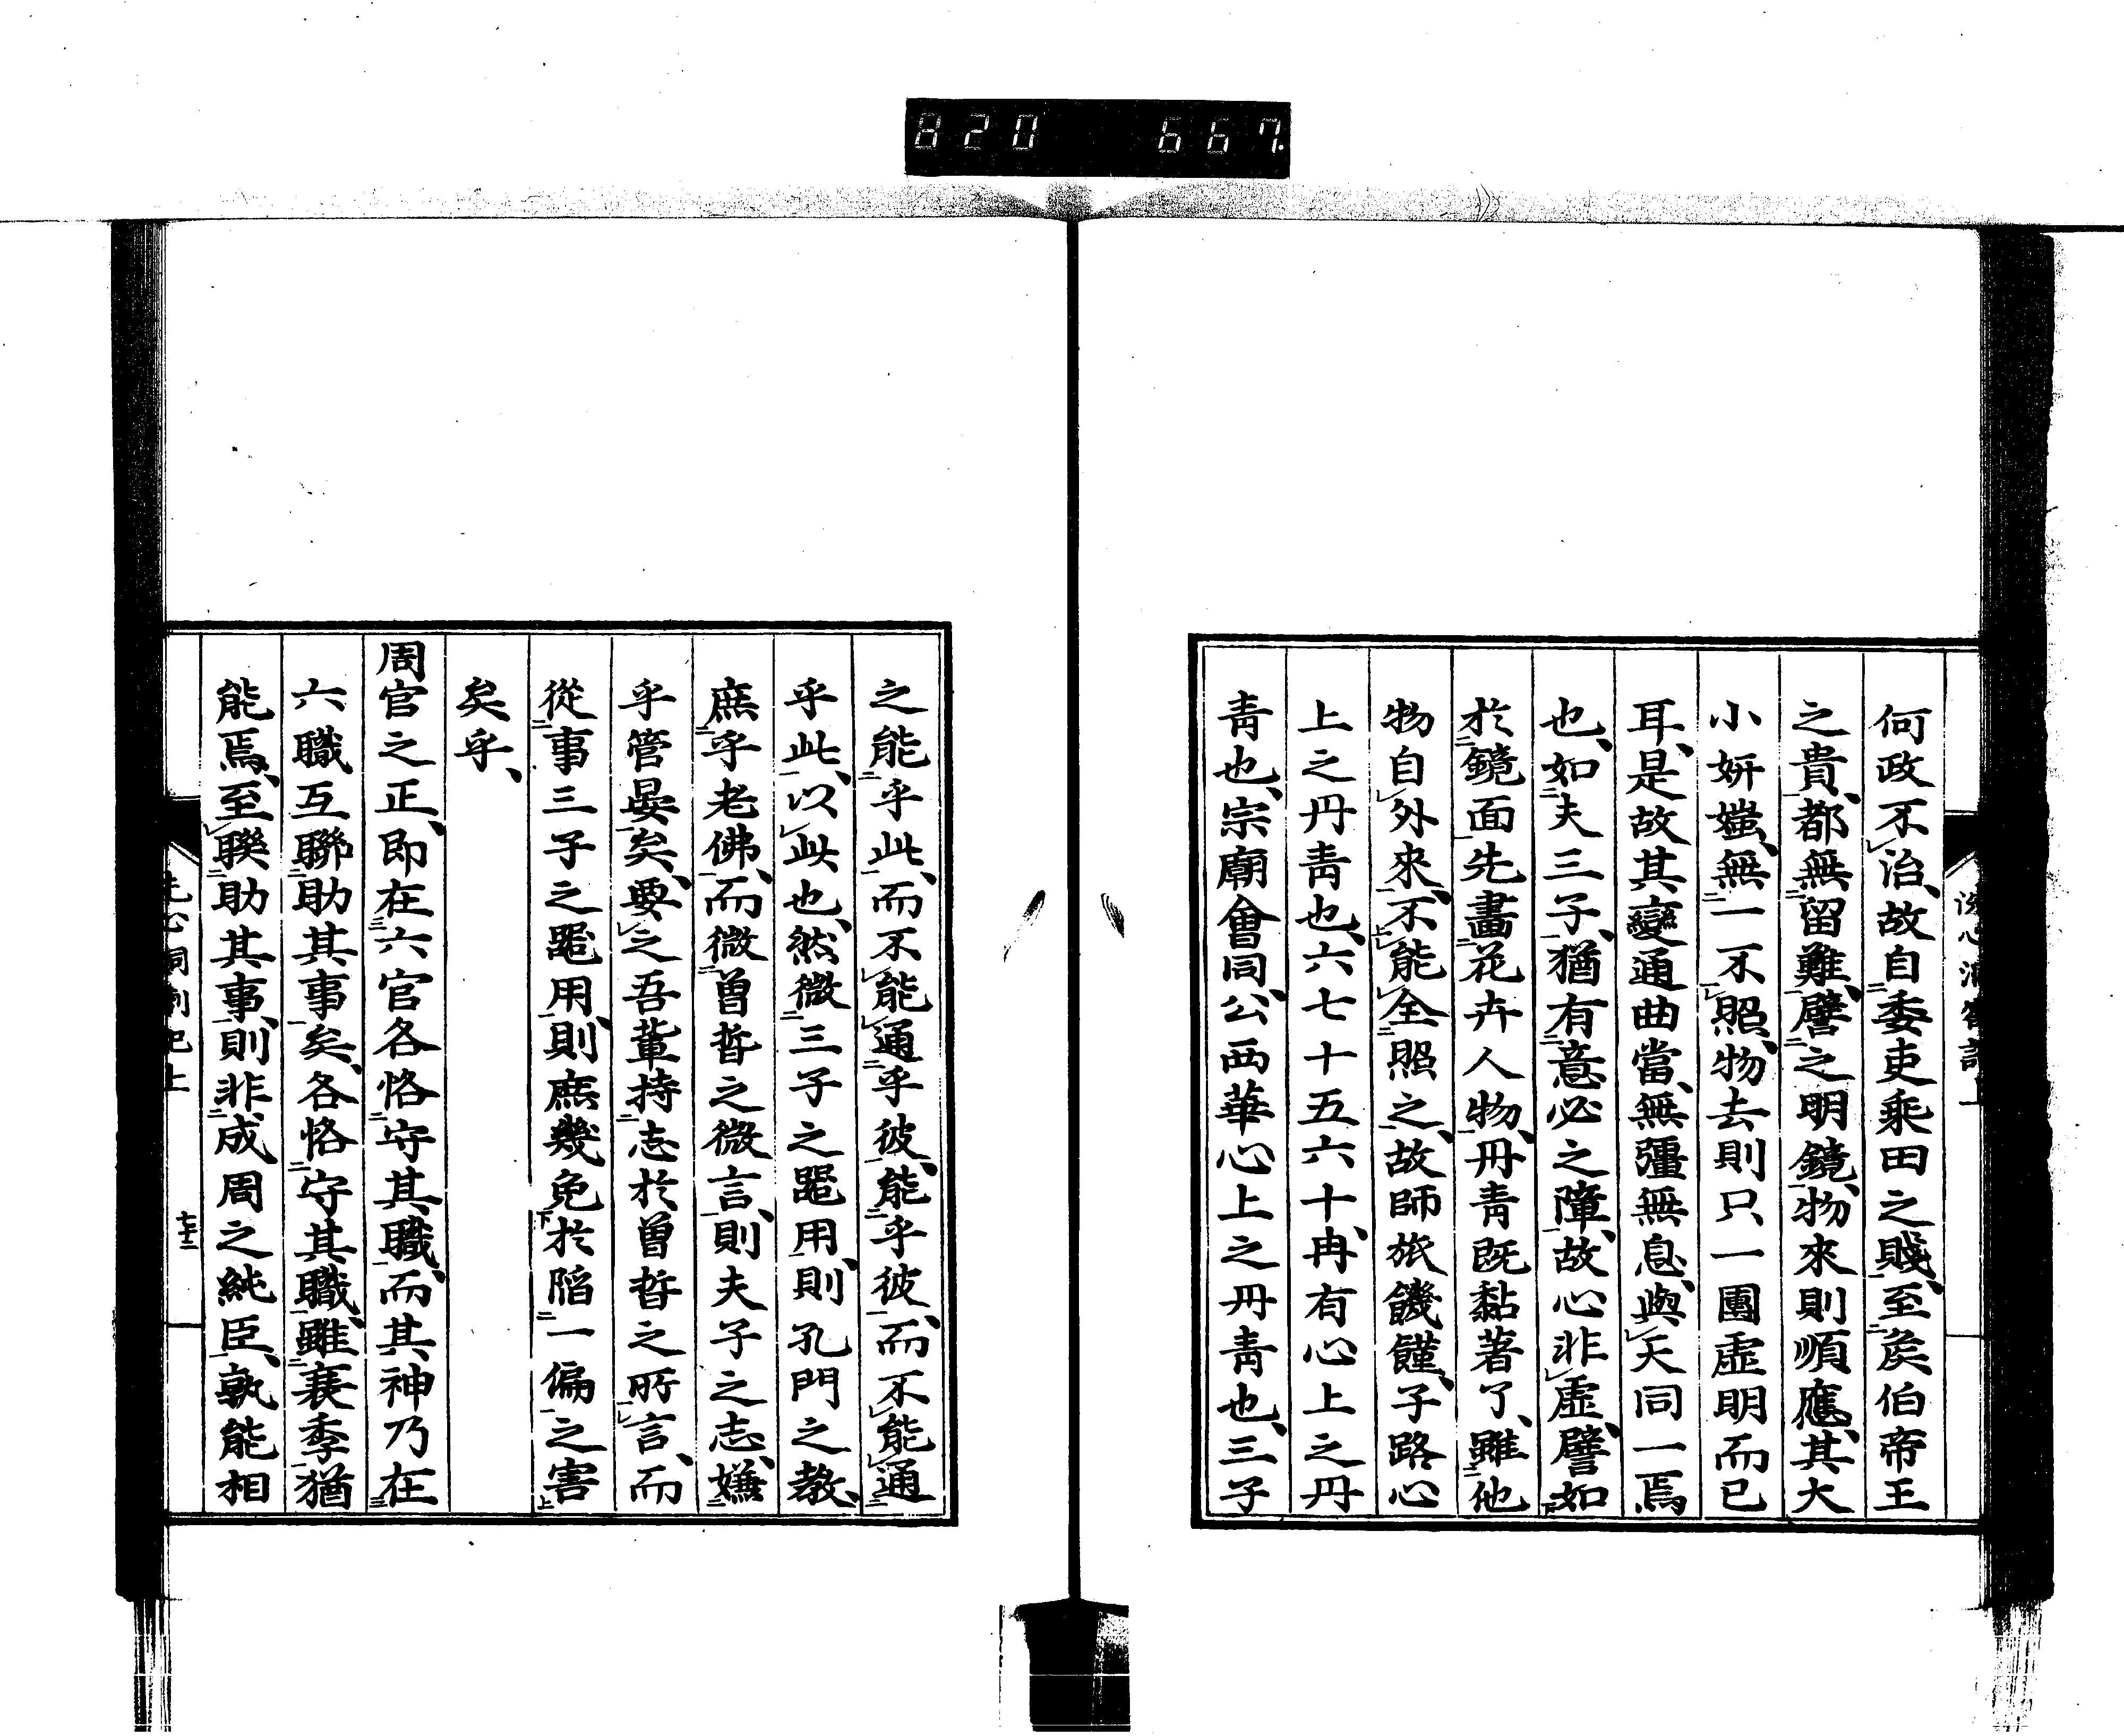 820 667.
何政不治、故自委吏乘田之賤、至矦伯帝王
之貴、都無留難、譬之明鏡、物來則順應、其大
小妍媸、無一不照、物去則只一團虛明而已
耳、是故其變通曲當、無彊無息、與天同一焉
也、如夫三子、猶有意必之障、故心非虛、譬如
於鏡面先畫花卉人物、丹青既黏著了、雖他
物自外來、不能全照之、故師旅饑饉、子路心
上之丹青也、六七十五六十、冉有心上之丹
青也、宗廟會同、公西華心上之丹青也、三子
之能乎此、而不能通乎彼、能乎彼、而不能通
乎此、以此也、然微三子之器用、則孔門之教、
庶乎老佛、而微曾晳之微言、則夫子之志、嫌
乎管晏矣、要之吾輩持志於曾晳之所言、而
從事三子之器用、則庶幾免於陷一偏之害
矣乎、
周官之正、即在六官各恪守其職、而其神乃在
六職互聯助其事矣、各恪守其職、雖衰季猶
能焉、至聯助其事、則非成周之純臣、孰能相